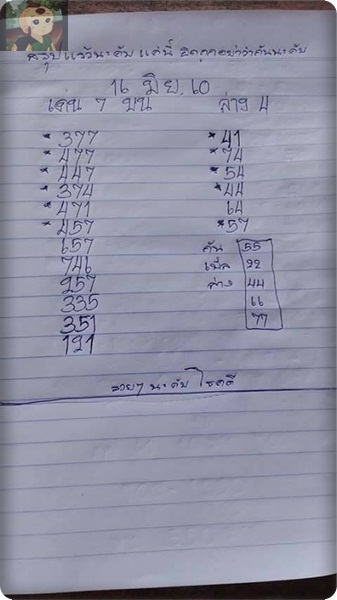 สรุปแล้วนะคับ แค่นี้ ผิดถูกอย่าว่ากันนะคับ
16 มิย, 60
เด่น 7 บน ล่าง 4
*377 *41
*477 *74
*447 *54
*374 *44
*471 64
*457 *57
657 กัน 55
746 เบิ้ล 22
957 ล่าง 44
335 66
351 77
191
รวยๆ นะคับ โชคดี